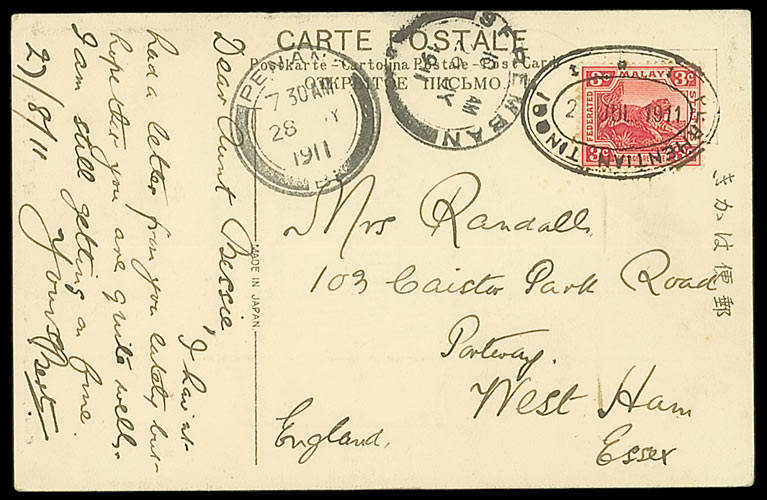 CARTE POSTALE
Postkarte - Cartolina Postale - Post Card
ОТКРЫТОЕ ПИСЬМО.
PENANG
7 30 AM
28
1911
SEREMBAN
AM
1911
FEDERATED MALAY
3c
3c
BRHENTIAN TINGGI
JUL 1911
郵便はかき
MADE IN JAPAN.
Dear Aunt Bessie,
I havn't
had a letter from you lately but
hope that you are quite well,
I am still getting on fine.
Yours Bert.
27/8/11
Mrs Randall
103 Caistor Park Road
Portway.
West Ham
Essex
England.